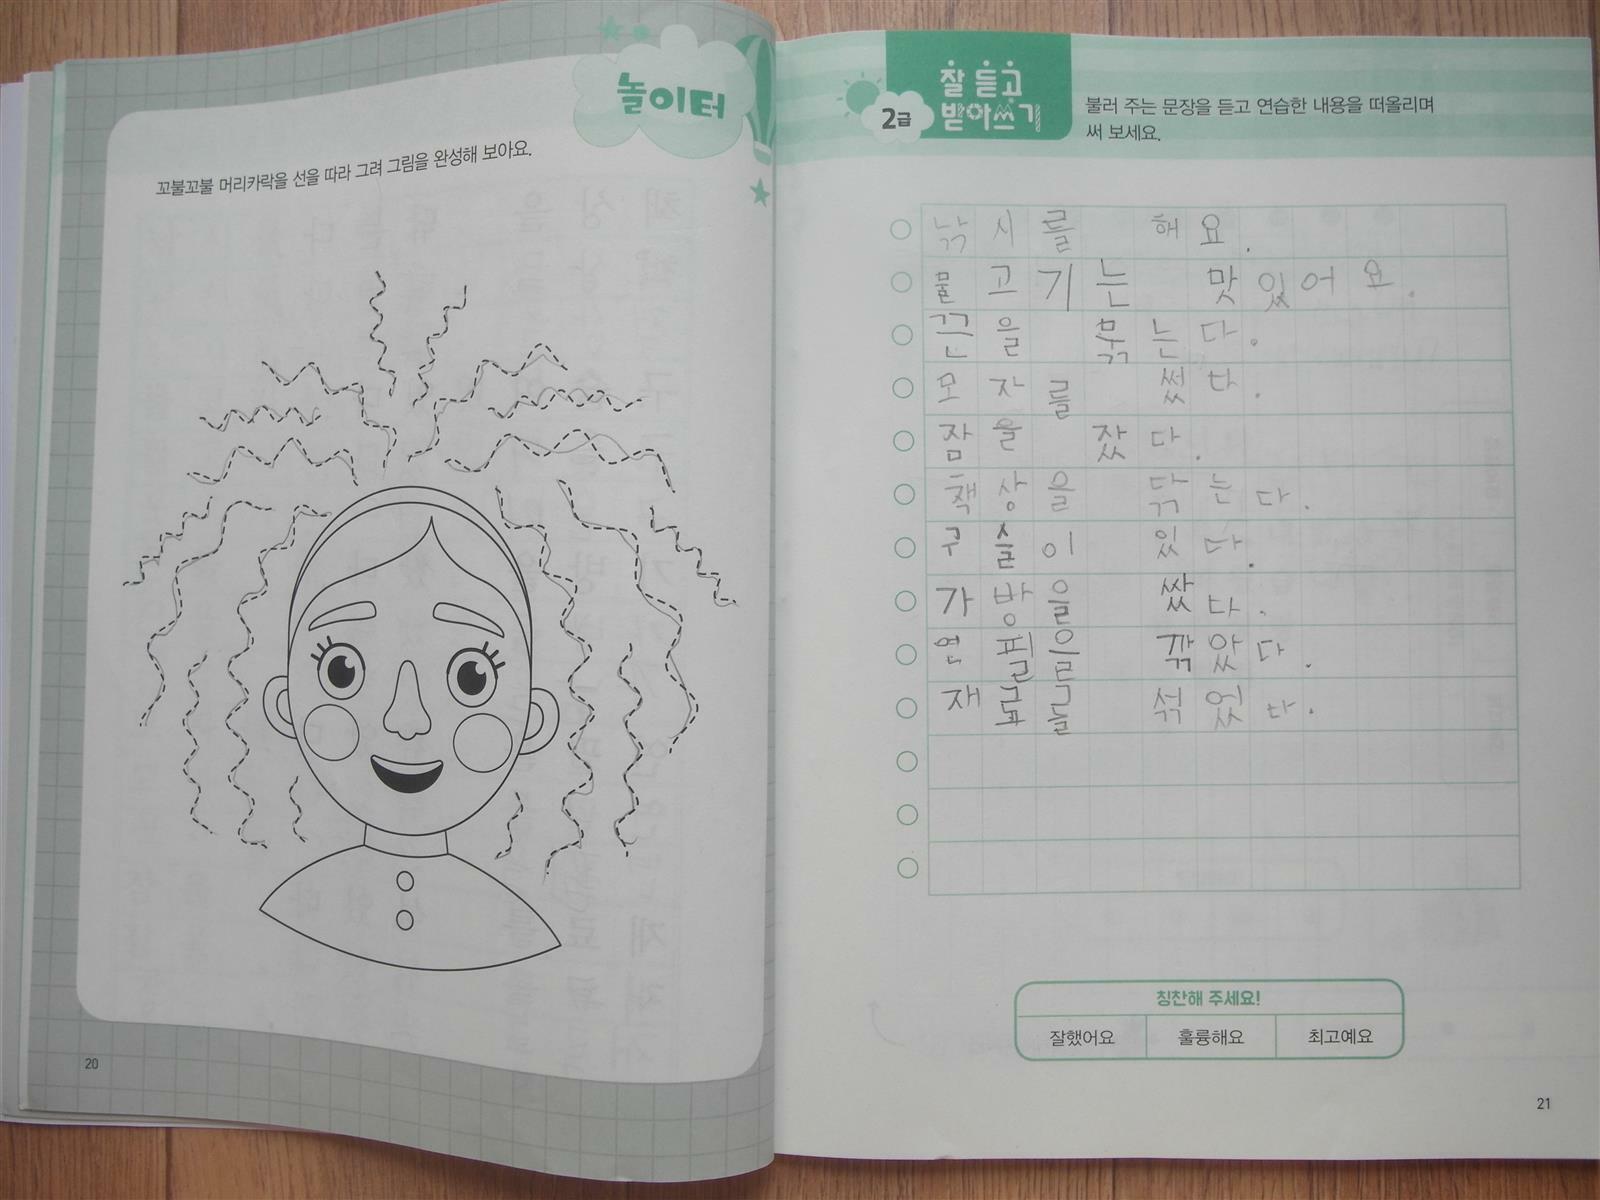 놀이터
꼬불꼬불 머리카락을 선을 따라 그려 그림을 완성해 보아요.
20
2급
잘 듣고
받아쓰기
불러 주는 문장을 듣고 연습한 내용을 떠올리며
써 보세요.
낚시를 해요.
물고기는 맛있어요.
끈을 묶는다.
모자를 썼다.
잠을 잤다.
책상을 닦는다.
구슬이 있다.
가방을 쌌다.
연필을 깎았다.
재료를 섞었다.
칭찬해 주세요!
잘했어요 훌륭해요 최고예요
21